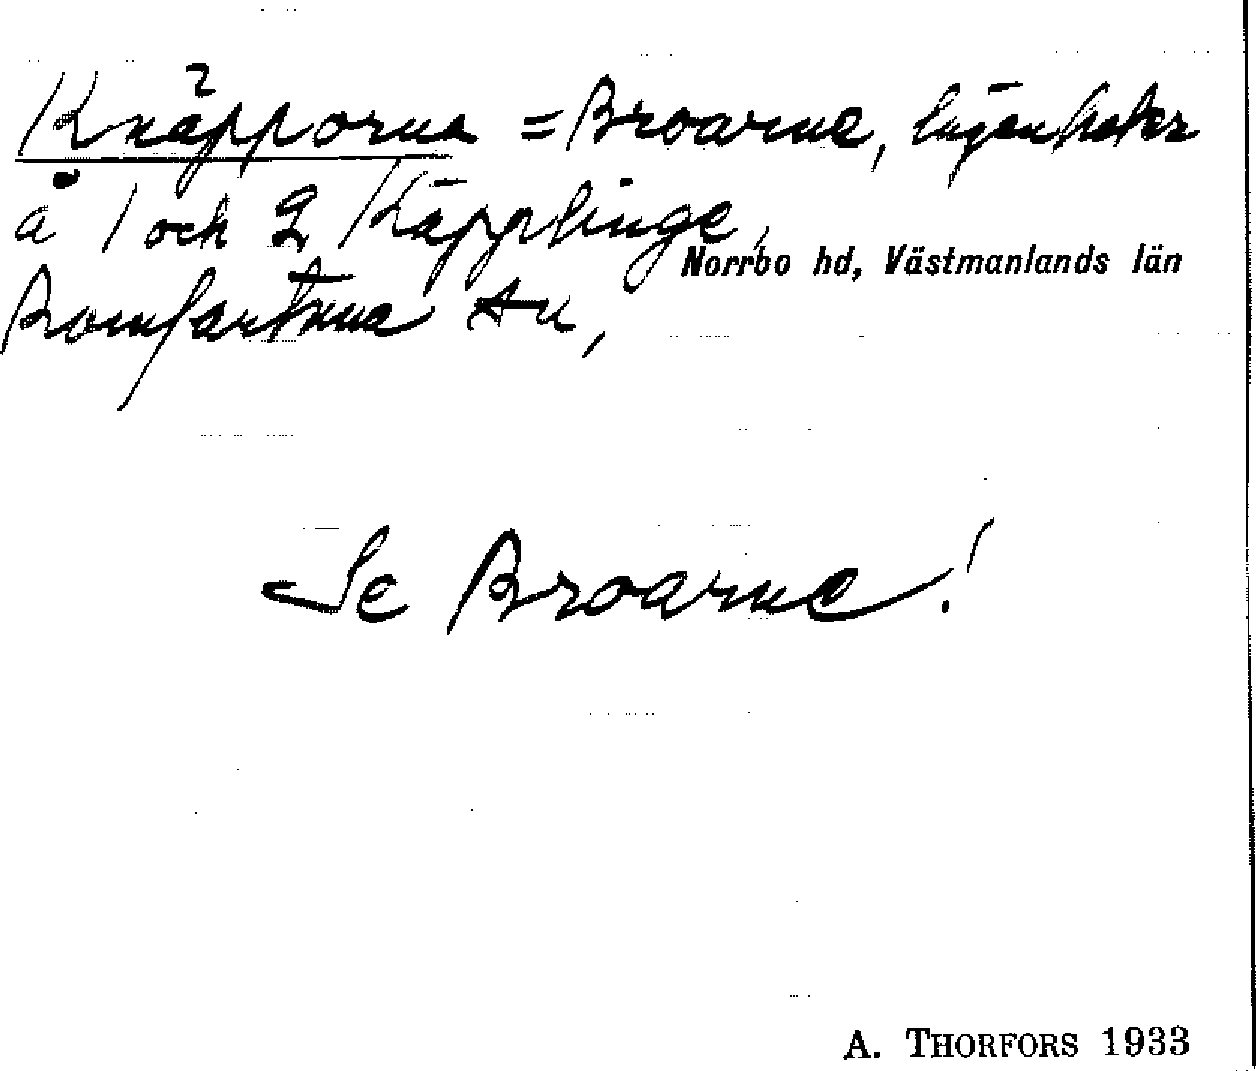 Knäpporna = Broarne, lägenheter
å 1 och 2 Käpplinge,
Norrbo hd, Västmanlands län
Romfartuna sn,
Se Broarne!
A. THORFORS 1933